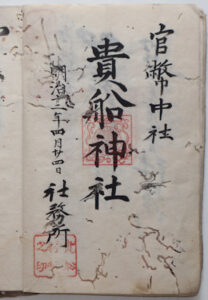 官幣中社
貴船神社
明治年四月廿四日
社務所